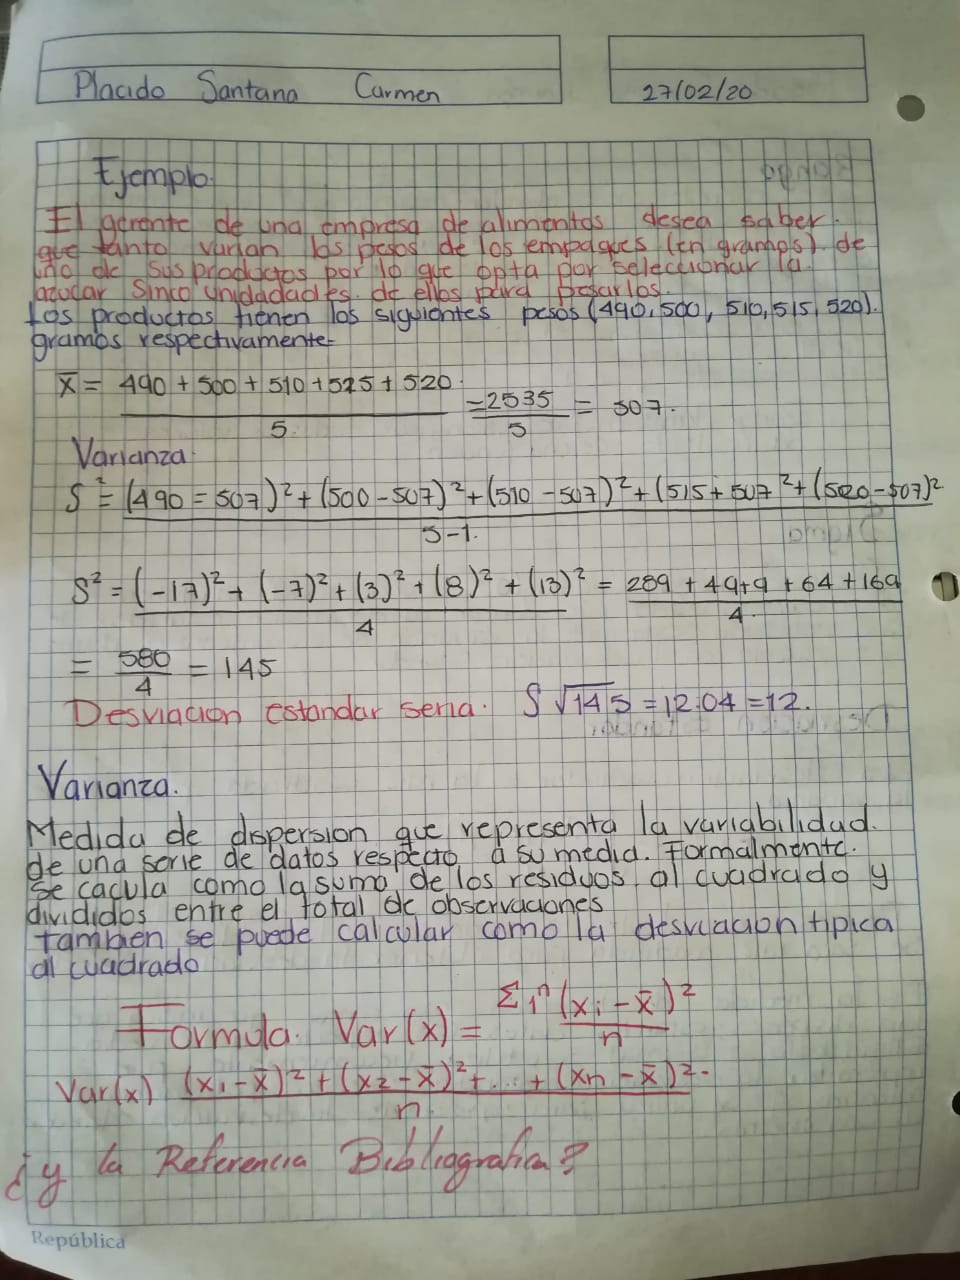 Placido Santana Carmen
27/02/20
Ejemplo.
El gerente de una empresa de alimentos desea saber.
que tanto varian los pesos de los empaques (en gramos) de
uno de sus productos por lo que opta por seleccionar la
azucar Sinco unidadades. de ellos para pesarlos.
Los productos tienen los siguientes pesos (490, 500, 510, 515, 520).
gramos respectivamente.
x̄ = 490 + 500 + 510 + 525 + 520 / 5 = 2535 / 5 = 507.
Varianza.
S² = (490 = 507)² + (500 - 507)² + (510 - 507)² + (515 + 507² + (520 - 507)² / 5-1.
S² = (-17)² + (-7)² + (3)² + (8)² + (13)² / 4 = 289 + 49+9 + 64 + 169 / 4.
= 580 / 4 = 145
Desviacion estandar seria. S √145 = 12.04 = 12.
Varianza.
Medida de dispersion que representa la variabilidad.
de una serie de datos respecto a su media. Formalmente.
se cacula como la suma de los residuos al cuadrado y
divididos entre el total de observaciones
tambien se puede calcular como la desviacion tipica
al cuadrado
Formula. Var(x) = Σ1ⁿ (xi - x̄)² / n
Var(x) (x1 - x̄)² + (x2 - x̄)² + ... + (xn - x̄)². / n
¿y la Referencia Bibliografica?
República